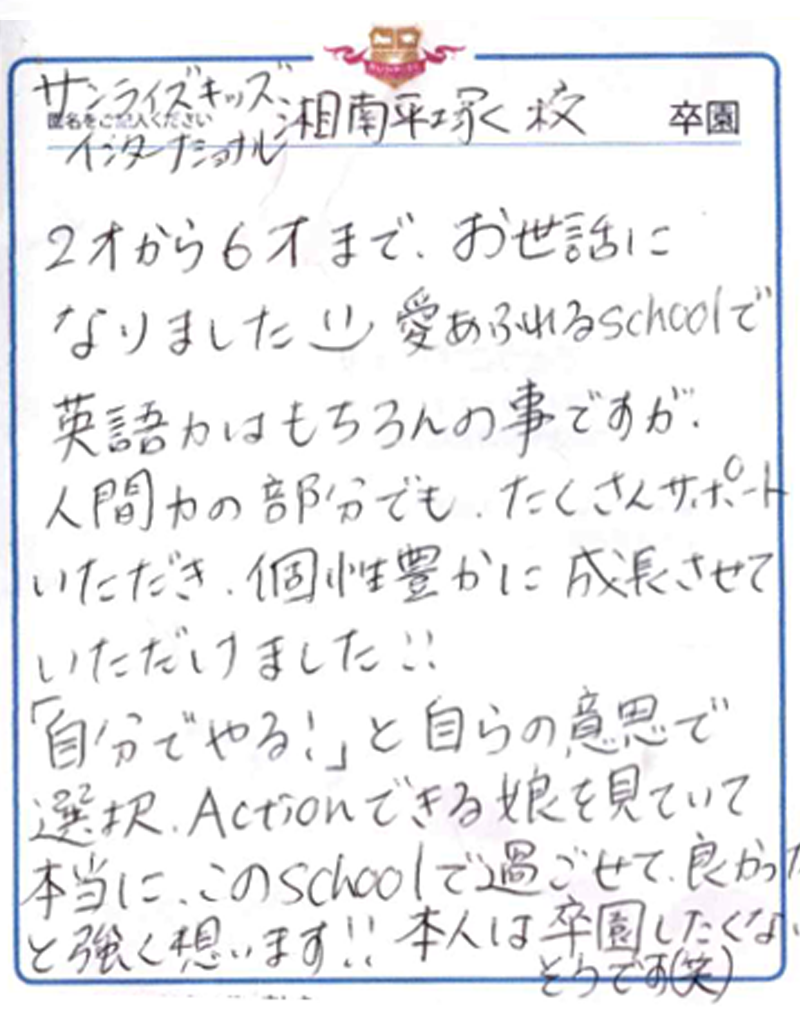 サンライズキッズ
園名をご記入ください
インターナショナル 湘南平塚く校 卒園
2才から6才まで、お世話に
なりました 愛あふれるschoolで
英語力はもちろんの事ですが、
人間力の部分でも、たくさんサポート
いただき、個性豊かに成長させて
いただけました!!
「自分でやる!」と自らの意思で
選択、Actionできる娘を見ていて
本当に、このschoolで過ごせて、良かった
と強く想います!! 本人は卒園したくない
そうです(笑)